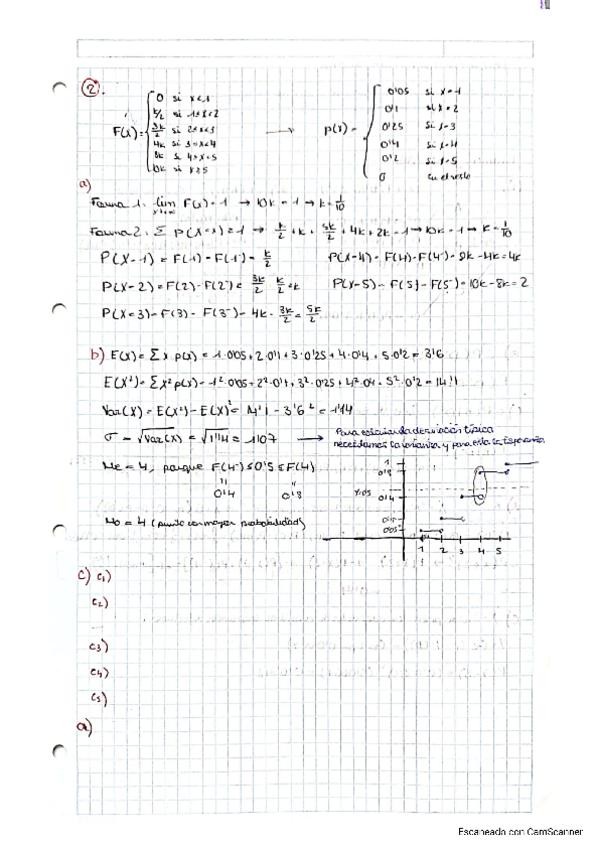 2.
F(x) = { 0 si x<1
k/2 si 1≤x<2
3k/2 si 2≤x<3
4k si 3≤x<4
8k si 4≤x<5
10k si x≥5
→ p(x) = { 0'05 si x=1
0'1 si x=2
0'25 si x=3
0'4 si x=4
0'2 si x=5
0 en el resto
a)
Forma 1. lim x→∞ F(x) = 1 → 10k = 1 → k = 1/10
Forma 2. Σ P(X=x) = 1 → k/2 + k + 5k/2 + 4k + 2k = 1 → 10k = 1 → k = 1/10
P(X=1) = F(1) - F(1⁻) = k/2 P(X=4) = F(4) - F(4⁻) = 8k - 4k = 4k
P(X=2) = F(2) - F(2⁻) = 3k/2 - k/2 = k P(X=5) = F(5) - F(5⁻) = 10k - 8k = 2
P(X=3) = F(3) - F(3⁻) = 4k - 3k/2 = 5k/2
b) E(X) = Σ x p(x) = 1·0'05 + 2·0'1 + 3·0'25 + 4·0'4 + 5·0'2 = 3'6
E(X²) = Σ x² p(x) = 1²·0'05 + 2²·0'1 + 3²·0'25 + 4²·0'4 + 5²·0'2 = 14'1
Var(X) = E(X²) - E(X)² = 14'1 - 3'6² = 1'14
σ = √Var(X) = √1'14 = 1'107 → Para calcular la desviación típica
necesitamos la varianza y para esta la esperanza
Me = 4, porque F(4⁻) ≤ 0'5 ≤ F(4)
0'4 0'8
Mo = 4 (punto con mayor probabilidad)
1
0'8
0'4
0'15
0'05
1 2 3 4 5
c) c1)
c2)
c3)
c4)
c5)
d)
Escaneado con CamScanner